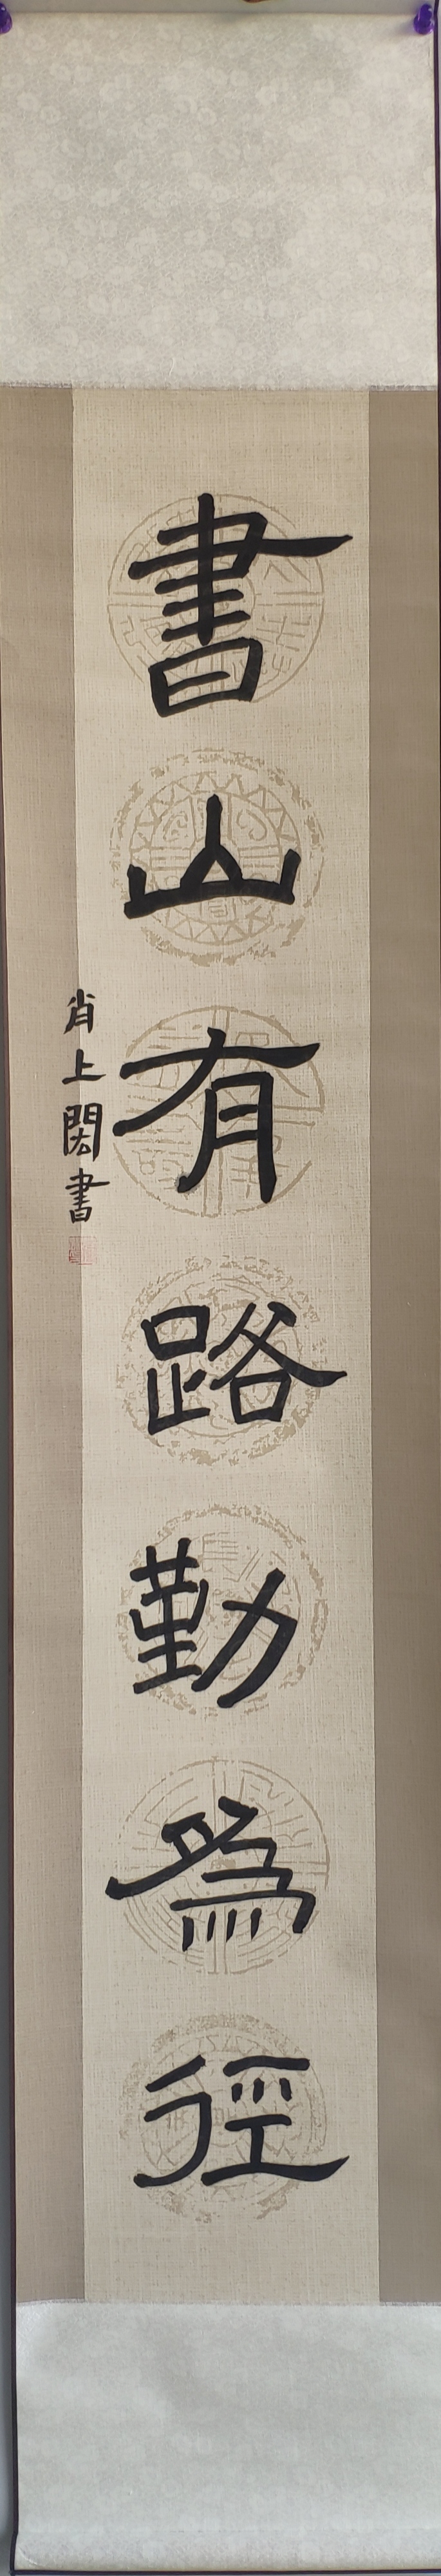 書山有路勤為徑
肖上閎書